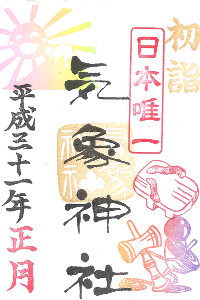 初詣
日本唯一
気象神社
平成三十一年正月